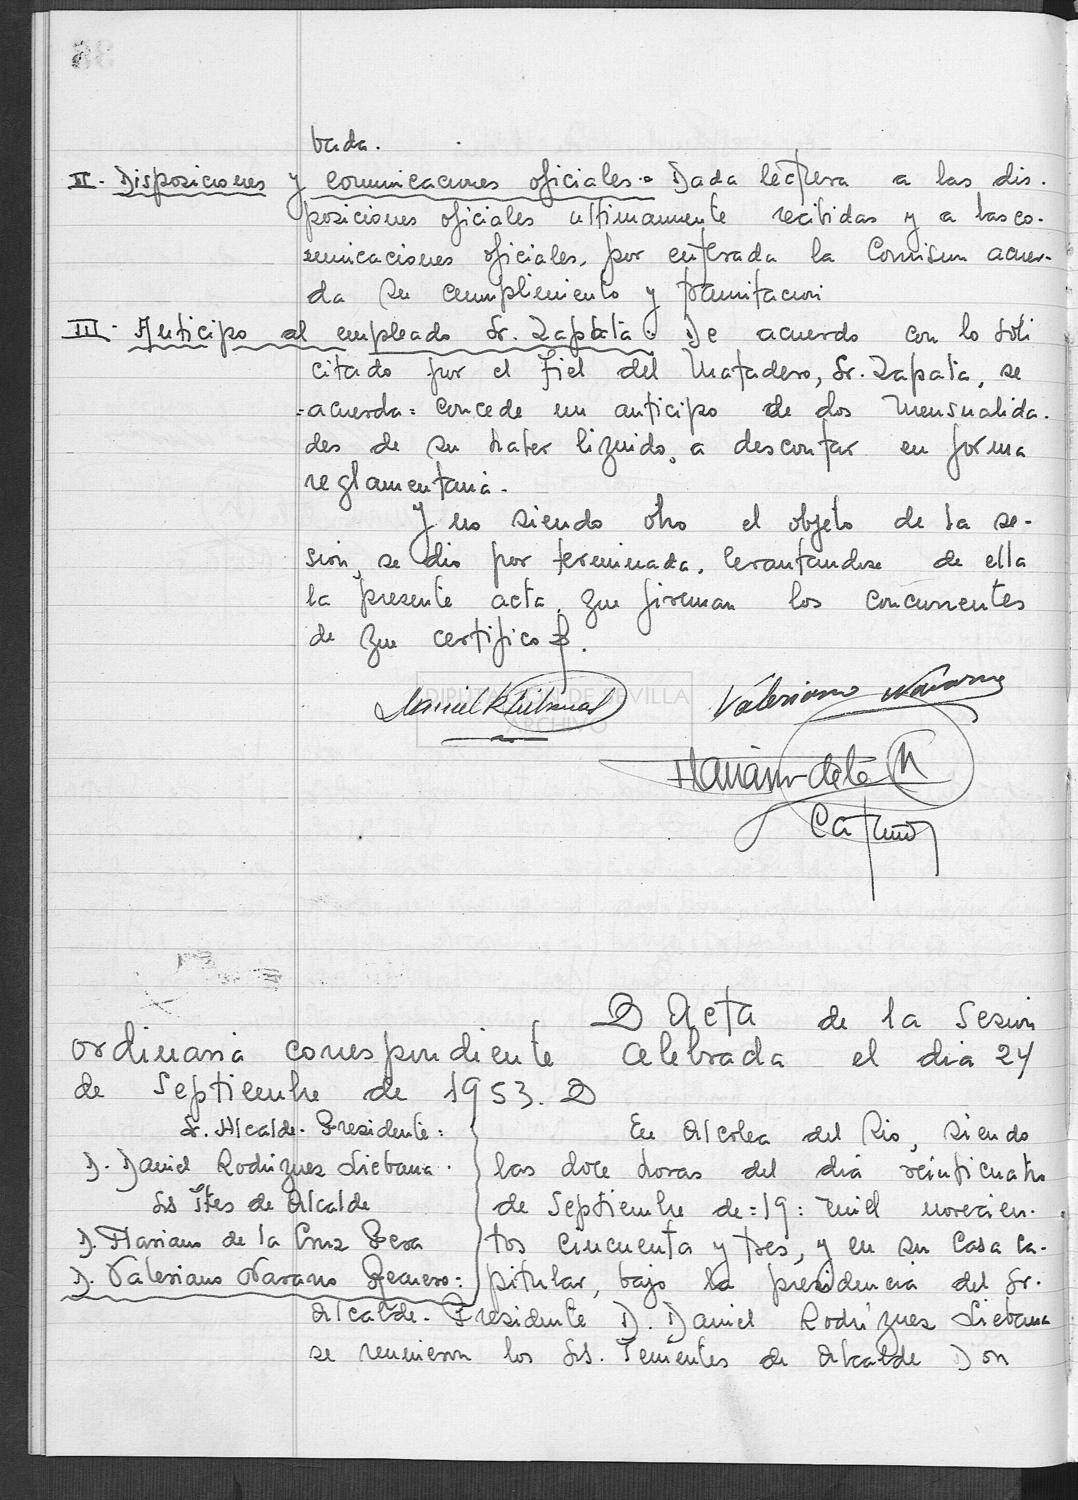 bada.
II- Disposiciones y comunicaciones oficiales = Dada lectura a las dis-
posiciones oficiales ultimamente recibidas y a las co-
municaciones oficiales, por enterada la Comision acuer-
da su cumplimiento y tramitacion
III- Anticipo al empleado Sr. Zapata: De acuerdo con lo soli
citado por el Fiel del Matadero, Sr. Zapata, se
=acuerda= concede un anticipo de dos mensualida-
des de su haber liquido, a descontar en forma
reglamentaria.
Y no siendo otro el objeto de la se-
sion, se dio por terminada, levantandose de ella
la presente acta, que firman los concurrentes
de que certifico
DIPUTACION DE SEVILLA
ARCHIVO
Valeriano Navarro
Mariano de la
Acta de la Sesion
ordinaria correspondiente celebrada el dia 24
de Septiembre de 1953.
Sr. Alcalde-Presidente:
D. Daniel Rodriguez Liebana.
Srs Ttes de Alcalde
D. Mariano de la Cruz Vera
D. Valeriano Navarro Requero:
En Alcolea del Rio, siendo
las doce horas del dia veinticuatro
de Septiembre de =19: mil novecien-
tos cincuenta y tres, y en su Casa Ca-
pitular, bajo la presidencia del Sr.
Alcalde-Presidente D. Daniel Rodriguez Liebana
se reunieron los Srs. Tenientes de Alcalde Don